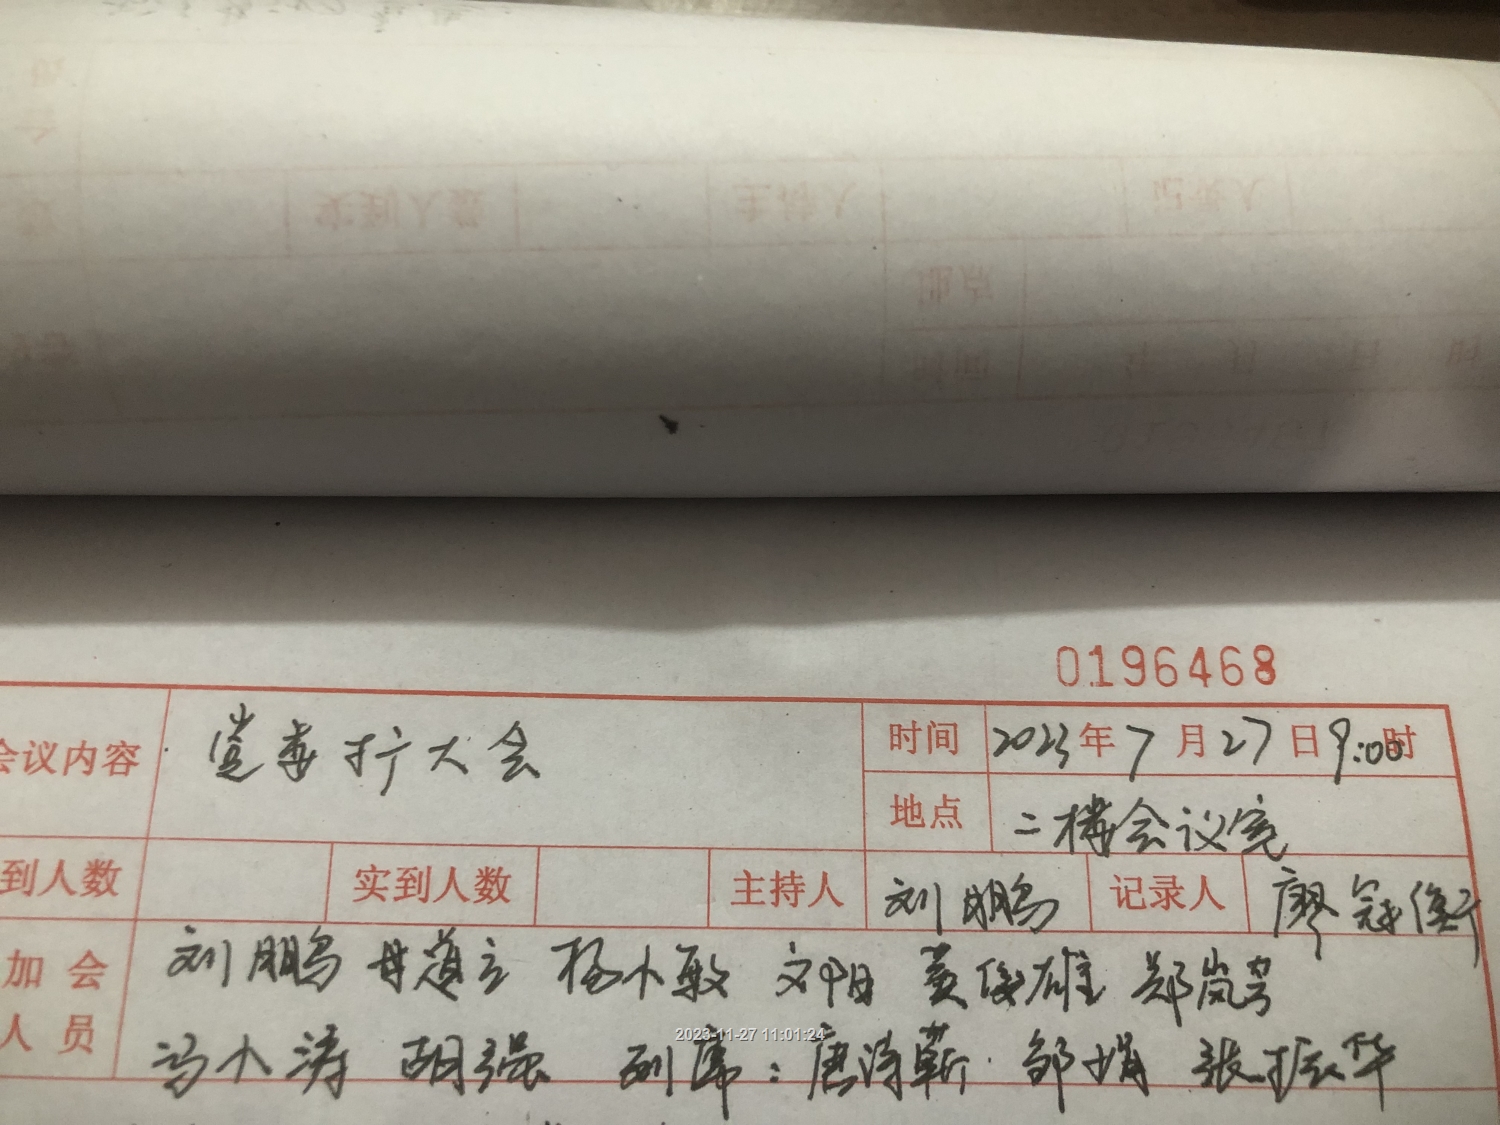 0196468
会议内容 党委扩大会 时间 2023年7月27日9:00时
地点 二楼会议室
到人数 实到人数 主持人 刘鹏 记录人 廖冠
加会 刘鹏 母道立 杨小敏 文阳 黄俊雄 郑岚
人员 冯小涛 胡强 列席：唐诗蕲 邹娟 张振华
2023-11-27 11:01:24